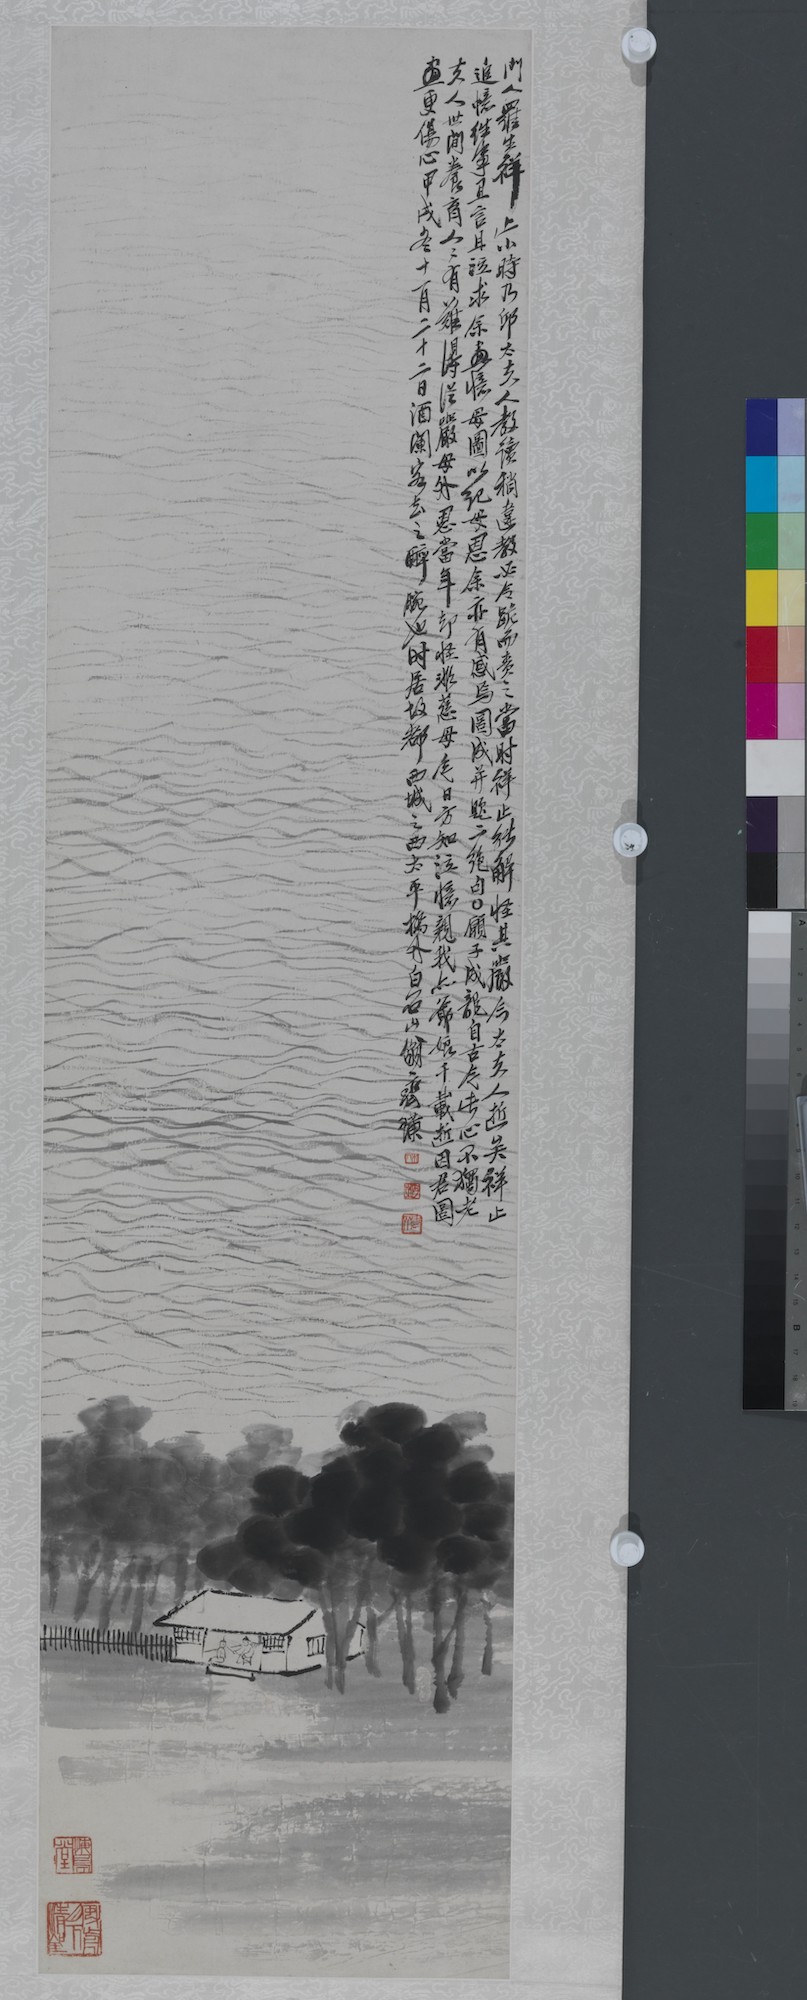 門人羅生祥止小時乃邱太夫人教讀稍違教必令跪而責之當時祥止能解怪其嚴今太夫人逝矣祥止
追憶往事且言且泣求余畫憶母圖以紀母恩余亦有感焉圖成并題二絕句○願子成龍自古今此心不獨老
夫人世間養育人人有難得從嚴母外恩當年卻怪非慈母今日方知泣憶親我亦爺娘千載逝因君圖
畫更傷心甲戌冬十一月二十二日酒闌客去之醉腕也時居故都西城之西太平橋外白石山翁齊璜